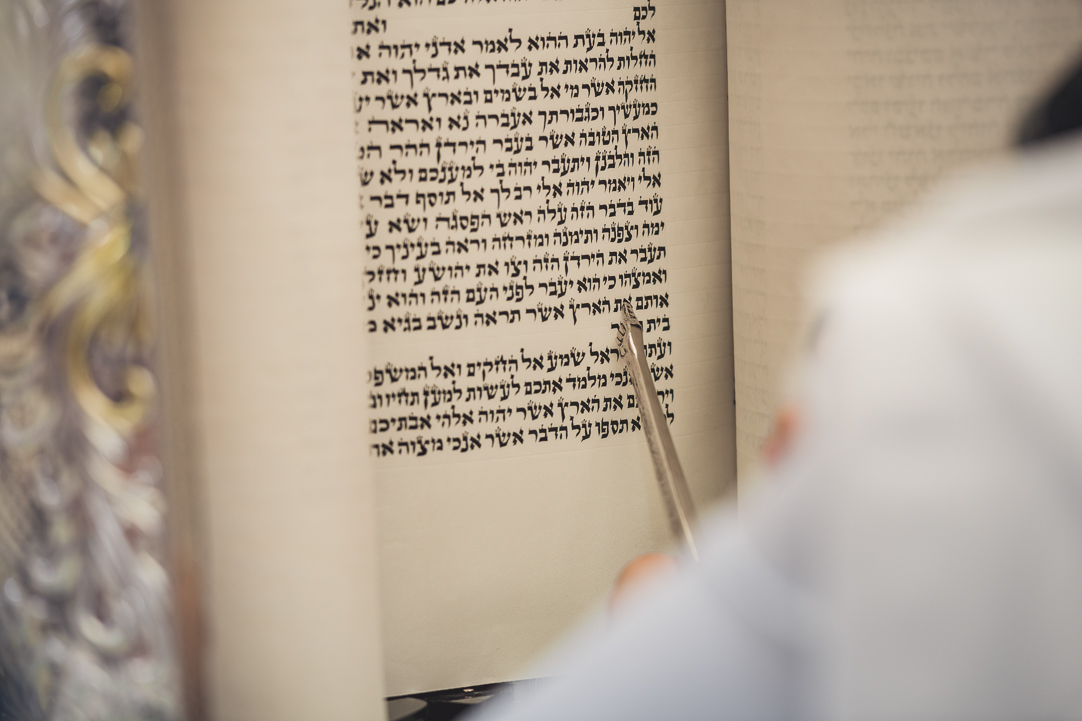 לכם
ואת
אל יהוה בעת ההוא לאמר אדני יהוה
החלות להראות את עבדך את גדלך ואת
החזקה אשר מי אל בשמים ובארץ אשר
כמעשיך וכגבורתך אעברה נא ואראה
הארץ הטובה אשר בעבר הירדן ההר
הזה והלבנן ויתעבר יהוה בי למענכם ולא
אלי ויאמר יהוה אלי רב לך אל תוסף דבר
עוד בדבר הזה עלה ראש הפסגה ושא
ימה וצפנה ותימנה ומזרחה וראה בעיניך כי
תעבר את הירדן הזה וצו את יהושע וחזק
ואמצהו כי הוא יעבר לפני העם הזה והוא
אותם את הארץ אשר תראה ונשב בגיא
בית
שמע אל החקים ואל
מלמד אתכם לעשות למען תחיו
את הארץ אשר יהוה אלהי אבתיכם
תספו על הדבר אשר אנכי מצוה